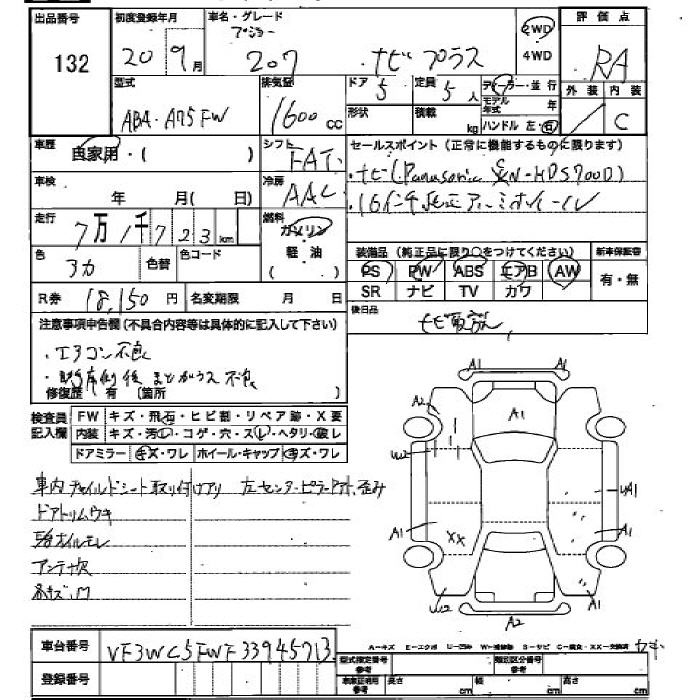 出品番号 初度登録年月 車名・グレード 評価点
132 20 9月 プジョー 207 ナビプラス 2WD 4WD RA
型式 排気量 ドア 定員 ディーラー・並行 外装 内装
ABA・A75FW 1600cc 5 5人 モデル年式 年 C
形状 積載 kg ハンドル 左・右
車歴 自家用・( ) シフト FAT セールスポイント(正常に機能するものに限ります)
車検 年 月(日) 冷房 AAC ・ナビ(Panasonic HDS700D)
走行 7万1千723km 燃料 ガソリン 軽・油 ( ) ・16インチ純正アルミホイール
色 アカ 色替 色コード 装備品(純正品に限り○をつけてください) 新車保証書
PS PW ABS エアB AW 有・無
R券 18,150円 名変期限 月 日 SR ナビ TV カワ
注意事項申告欄(不具合内容等は具体的に記入して下さい) 後日品
・エアコン不良
後 まどガラス不良
修復歴 有 (箇所
検査員記入欄 FW キズ・飛石・ヒビ割・リペア跡・X要
内装 キズ・汚レ・コゲ・穴・スレ・ヘタリ・破レ
ドアミラー キズ・ワレ ホイール・キャップ キズ・ワレ
A1 A1
A2 A1
W2 UA1
A1 XX A1
W2 A1
A2
車内チャイルドシート取り付けアリ 左センターピラー 歪み
ドアトリムウキ
オイルモレ
アンテナ欠
車台番号 VF3WC5FWF33945713
A-キズ E-エクボ U-凹み W-補修跡 S-サビ C-腐食 XX-交換済
登録番号 型式指定番号 類別区分番号
長さ cm 幅 cm 高さ cm